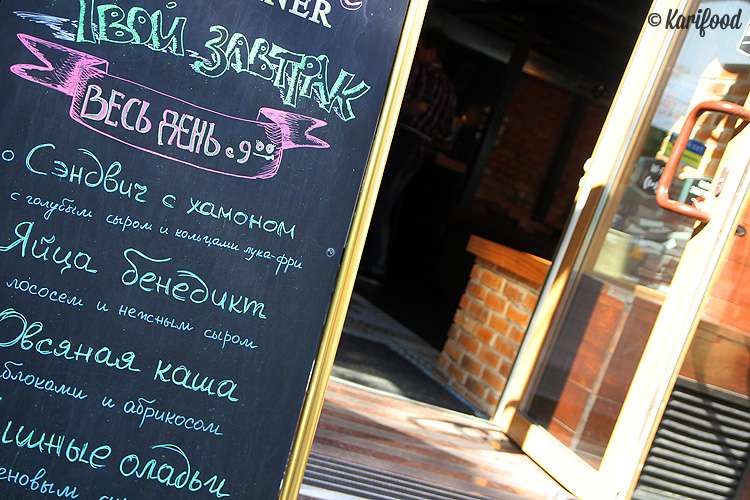 © Karifood
NER
Твой завтрак
весь день с 9⁰⁰
Сэндвич с хамоном
с голубым сыром и кольцами лука-фри
Яйца бенедикт
лососем и нежным сыром
Овсяная каша
блоками и абрикосом
ышные оладьи
еновым